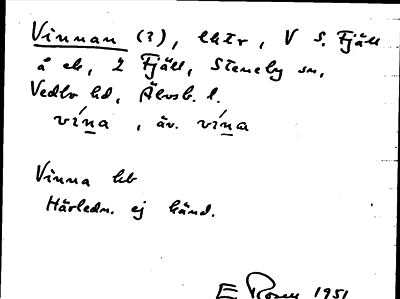 Vinnan (?), lktr, V S. Fjäll
å ek, 2 Fjäll, Steneby sn,
Vedbo hd, Älvsb. l.
vína, äv. vína
Vinna kb
Härledn. ej känd.
E Rosen 1951